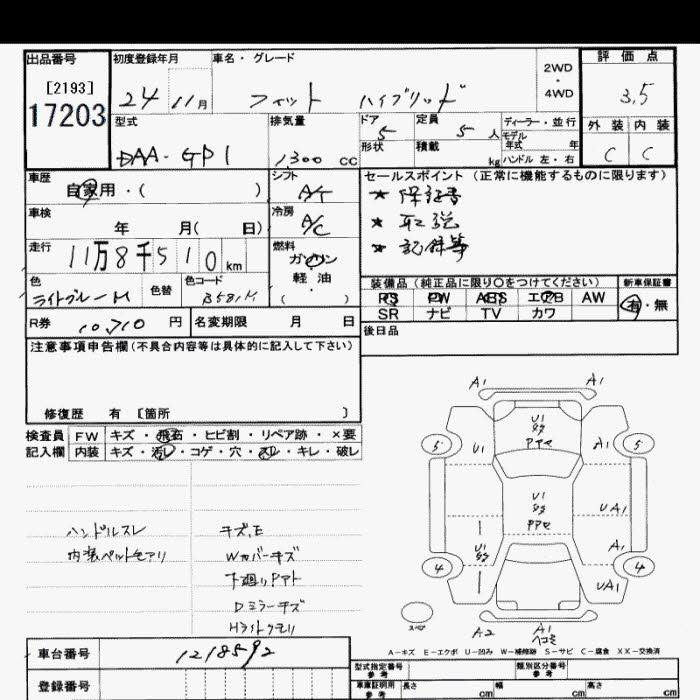 出品番号
[2193]
17203
初度登録年月
24 11月
車名・グレード
フィット ハイブリッド
2WD
・
4WD
評価点
3.5
外装 内装
C C
型式
DAA-GP1
排気量
1300 cc
ドア
5
定員
5人
ディーラー・並行
モデル
年式 年
形状
積載
kg
ハンドル 左・右
車歴
自家用・( )
シフト
AT
車検
年 月( 日)
冷房
A/C
走行
11万8千510km
燃料
ガソリン
・
軽油
( )
色
ライトブルーM
色替
色コード
B581M
R券
10,710 円
名変期限 月 日
セールスポイント(正常に機能するものに限ります)
★ 保証書
★ 取説
★ 記録簿
装備品(純正品に限り〇をつけてください)
新車保証書
PS PW ABS エアB AW
有・無
SR ナビ TV カワ
後日品
注意事項申告欄(不具合内容等は具体的に記入して下さい)
修復歴 有 [箇所 ]
検査員
記入欄
FW キズ・飛石・ヒビ割・リペア跡・×要
内装 キズ・汚レ・コゲ・穴・スレ・キレ・破レ
ハンドルスレ
内装ペットモアリ
キズ、E
Wカバーキズ
下廻りサビ
Dミラーキズ
Hライトクモリ
A1 A1
U1
5 5
U1 A1
U1
UA1
U1
A1
4 4
UA1
スペア
A2 A1
ヘコミ
A-キズ E-エクボ U-凹み W-補修跡 S-サビ C-腐食 XX-交換済
車台番号
1218592
登録番号
型式指定番号
参考
類別区分番号
参考
車庫証明用
参考
長さ cm
幅 cm
高さ cm